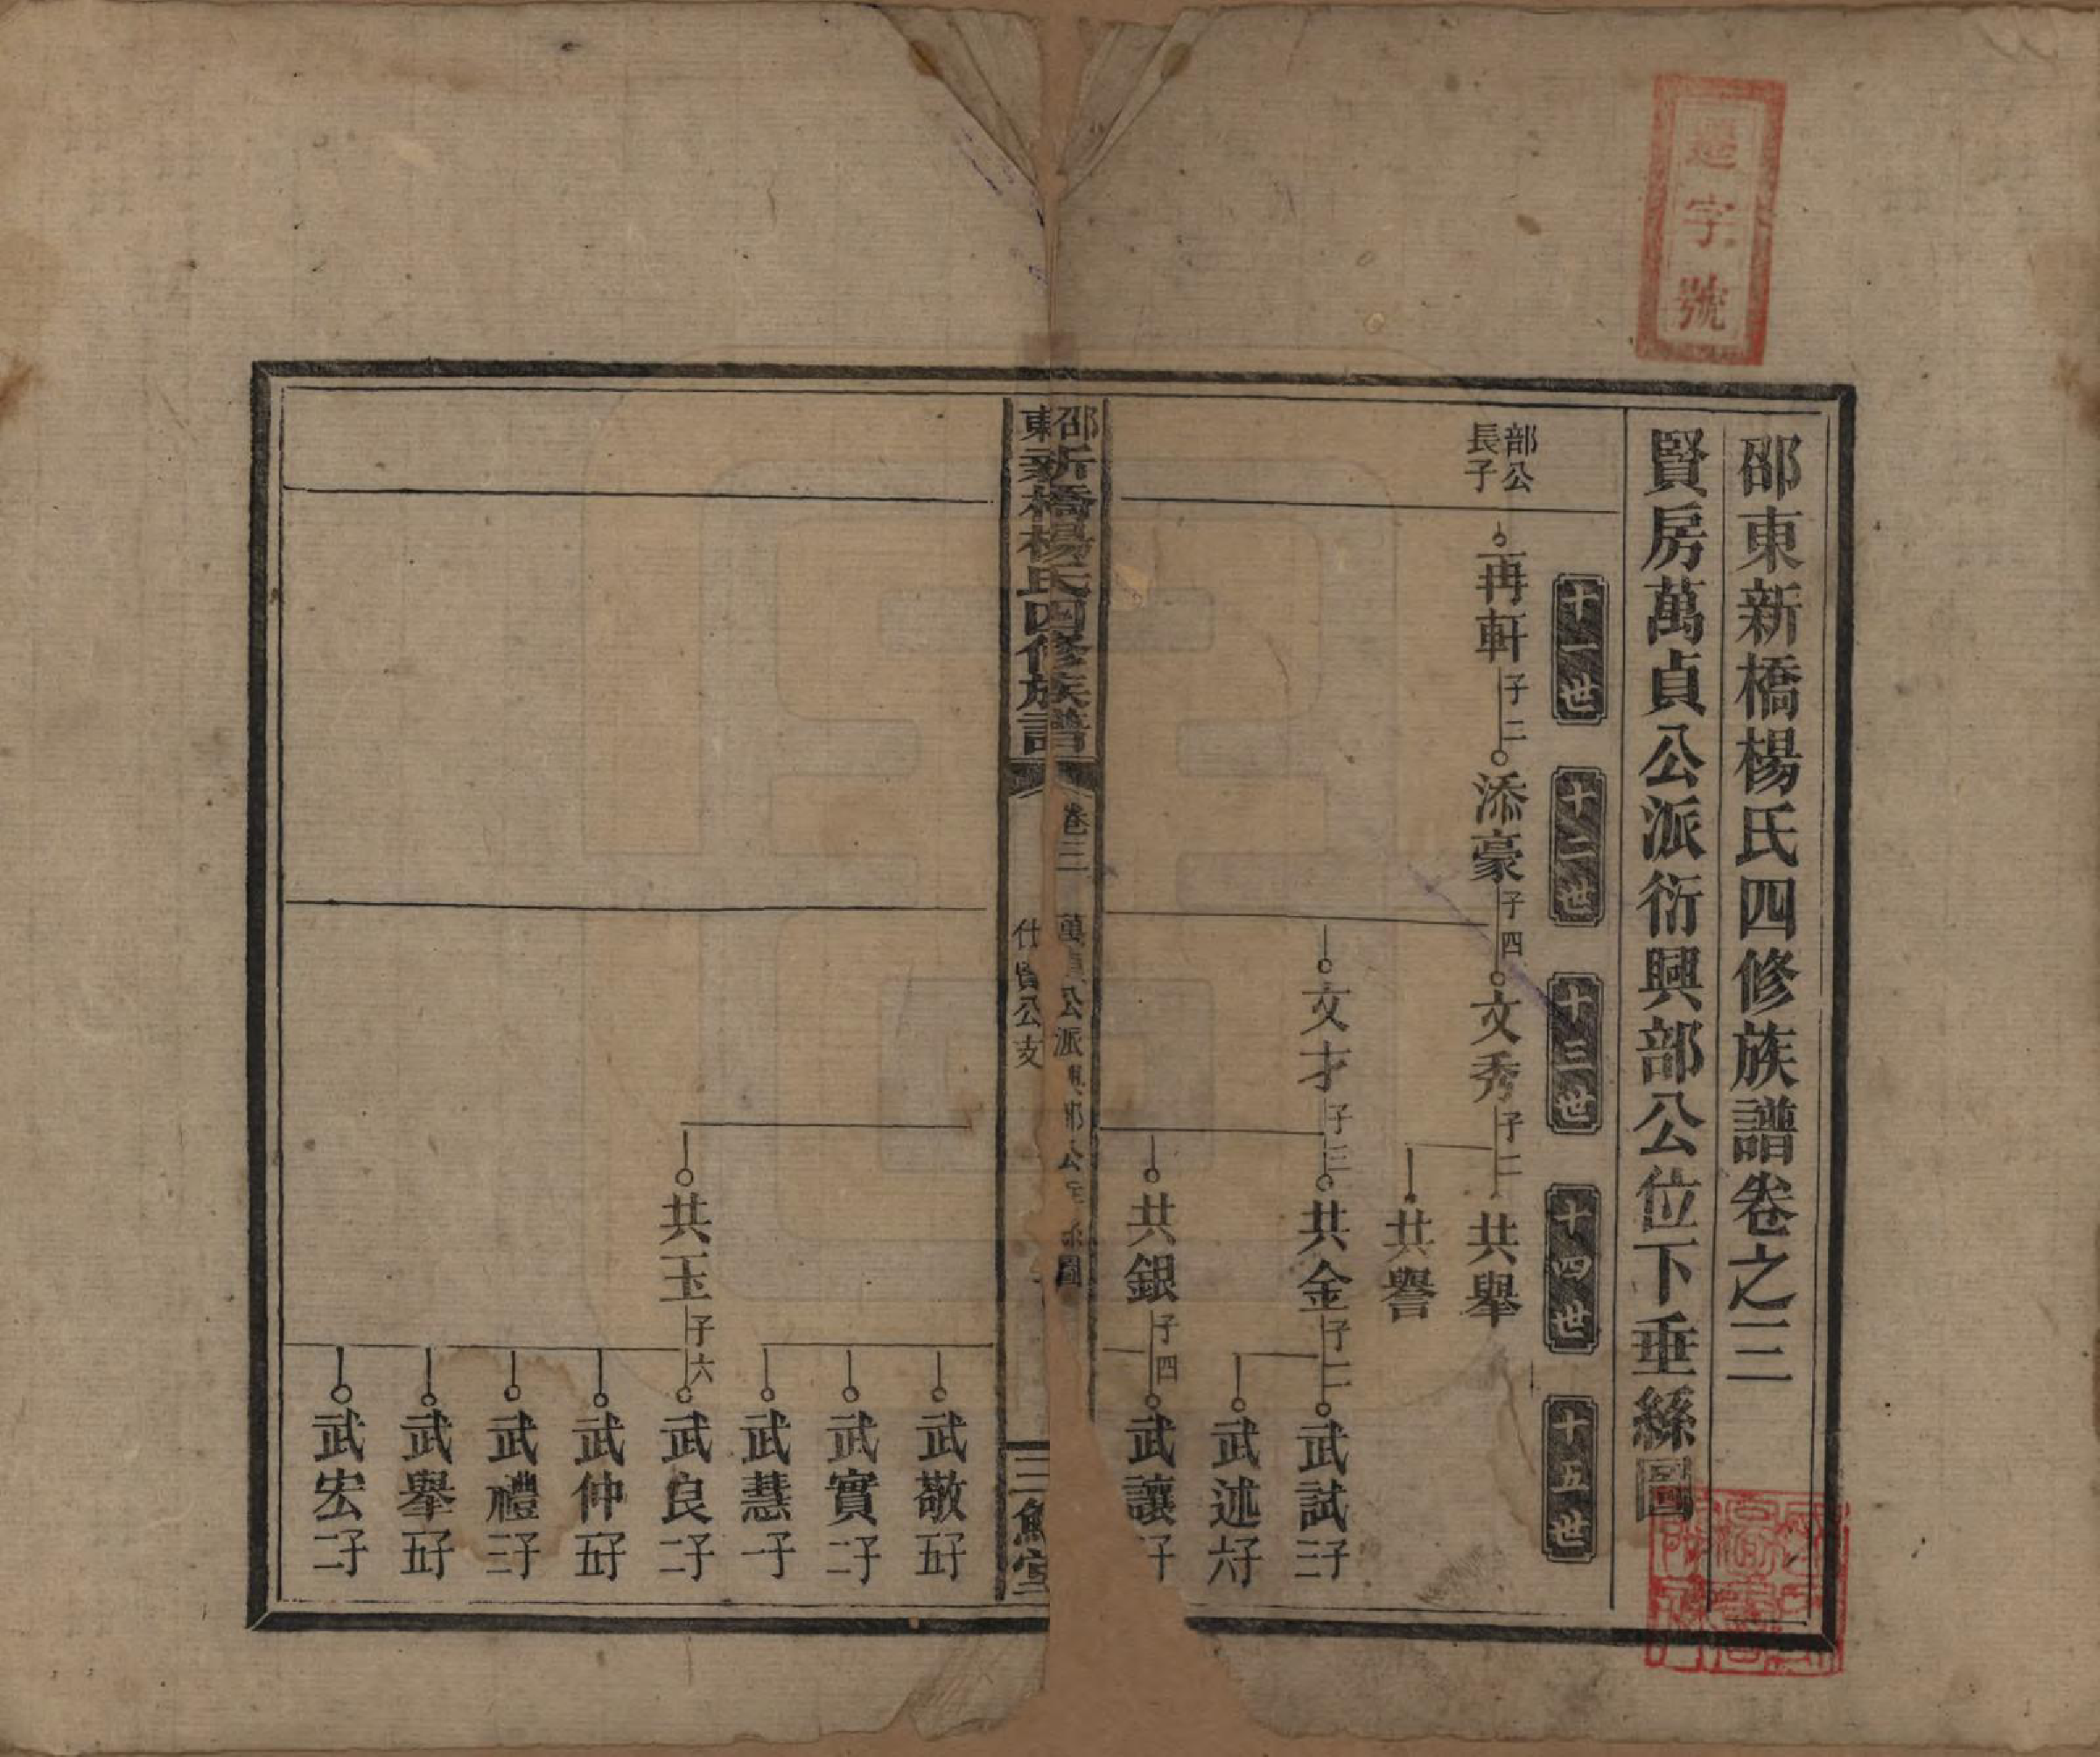 字號
邵東新橋楊氏四修族譜卷之三
賢房萬貞公派衍興部公位下垂絲圖
十一世
十二世
十三世
十四世
十五世
部公
長子
再軒 子二
添豪 子四
文秀 子二
共舉
共譽
文才 子三
共金 子二
武試 子三
武述 子六
共銀 子四
武讓 子
邵東新橋楊氏四修族譜
卷三
萬貞公派興部公垂絲圖
仕賢公支
三鱣堂
武敬 子五
武實 子二
武慧 子一
共玉 子六
武良 子二
武仲 子五
武禮 子三
武舉 子五
武宏 子二